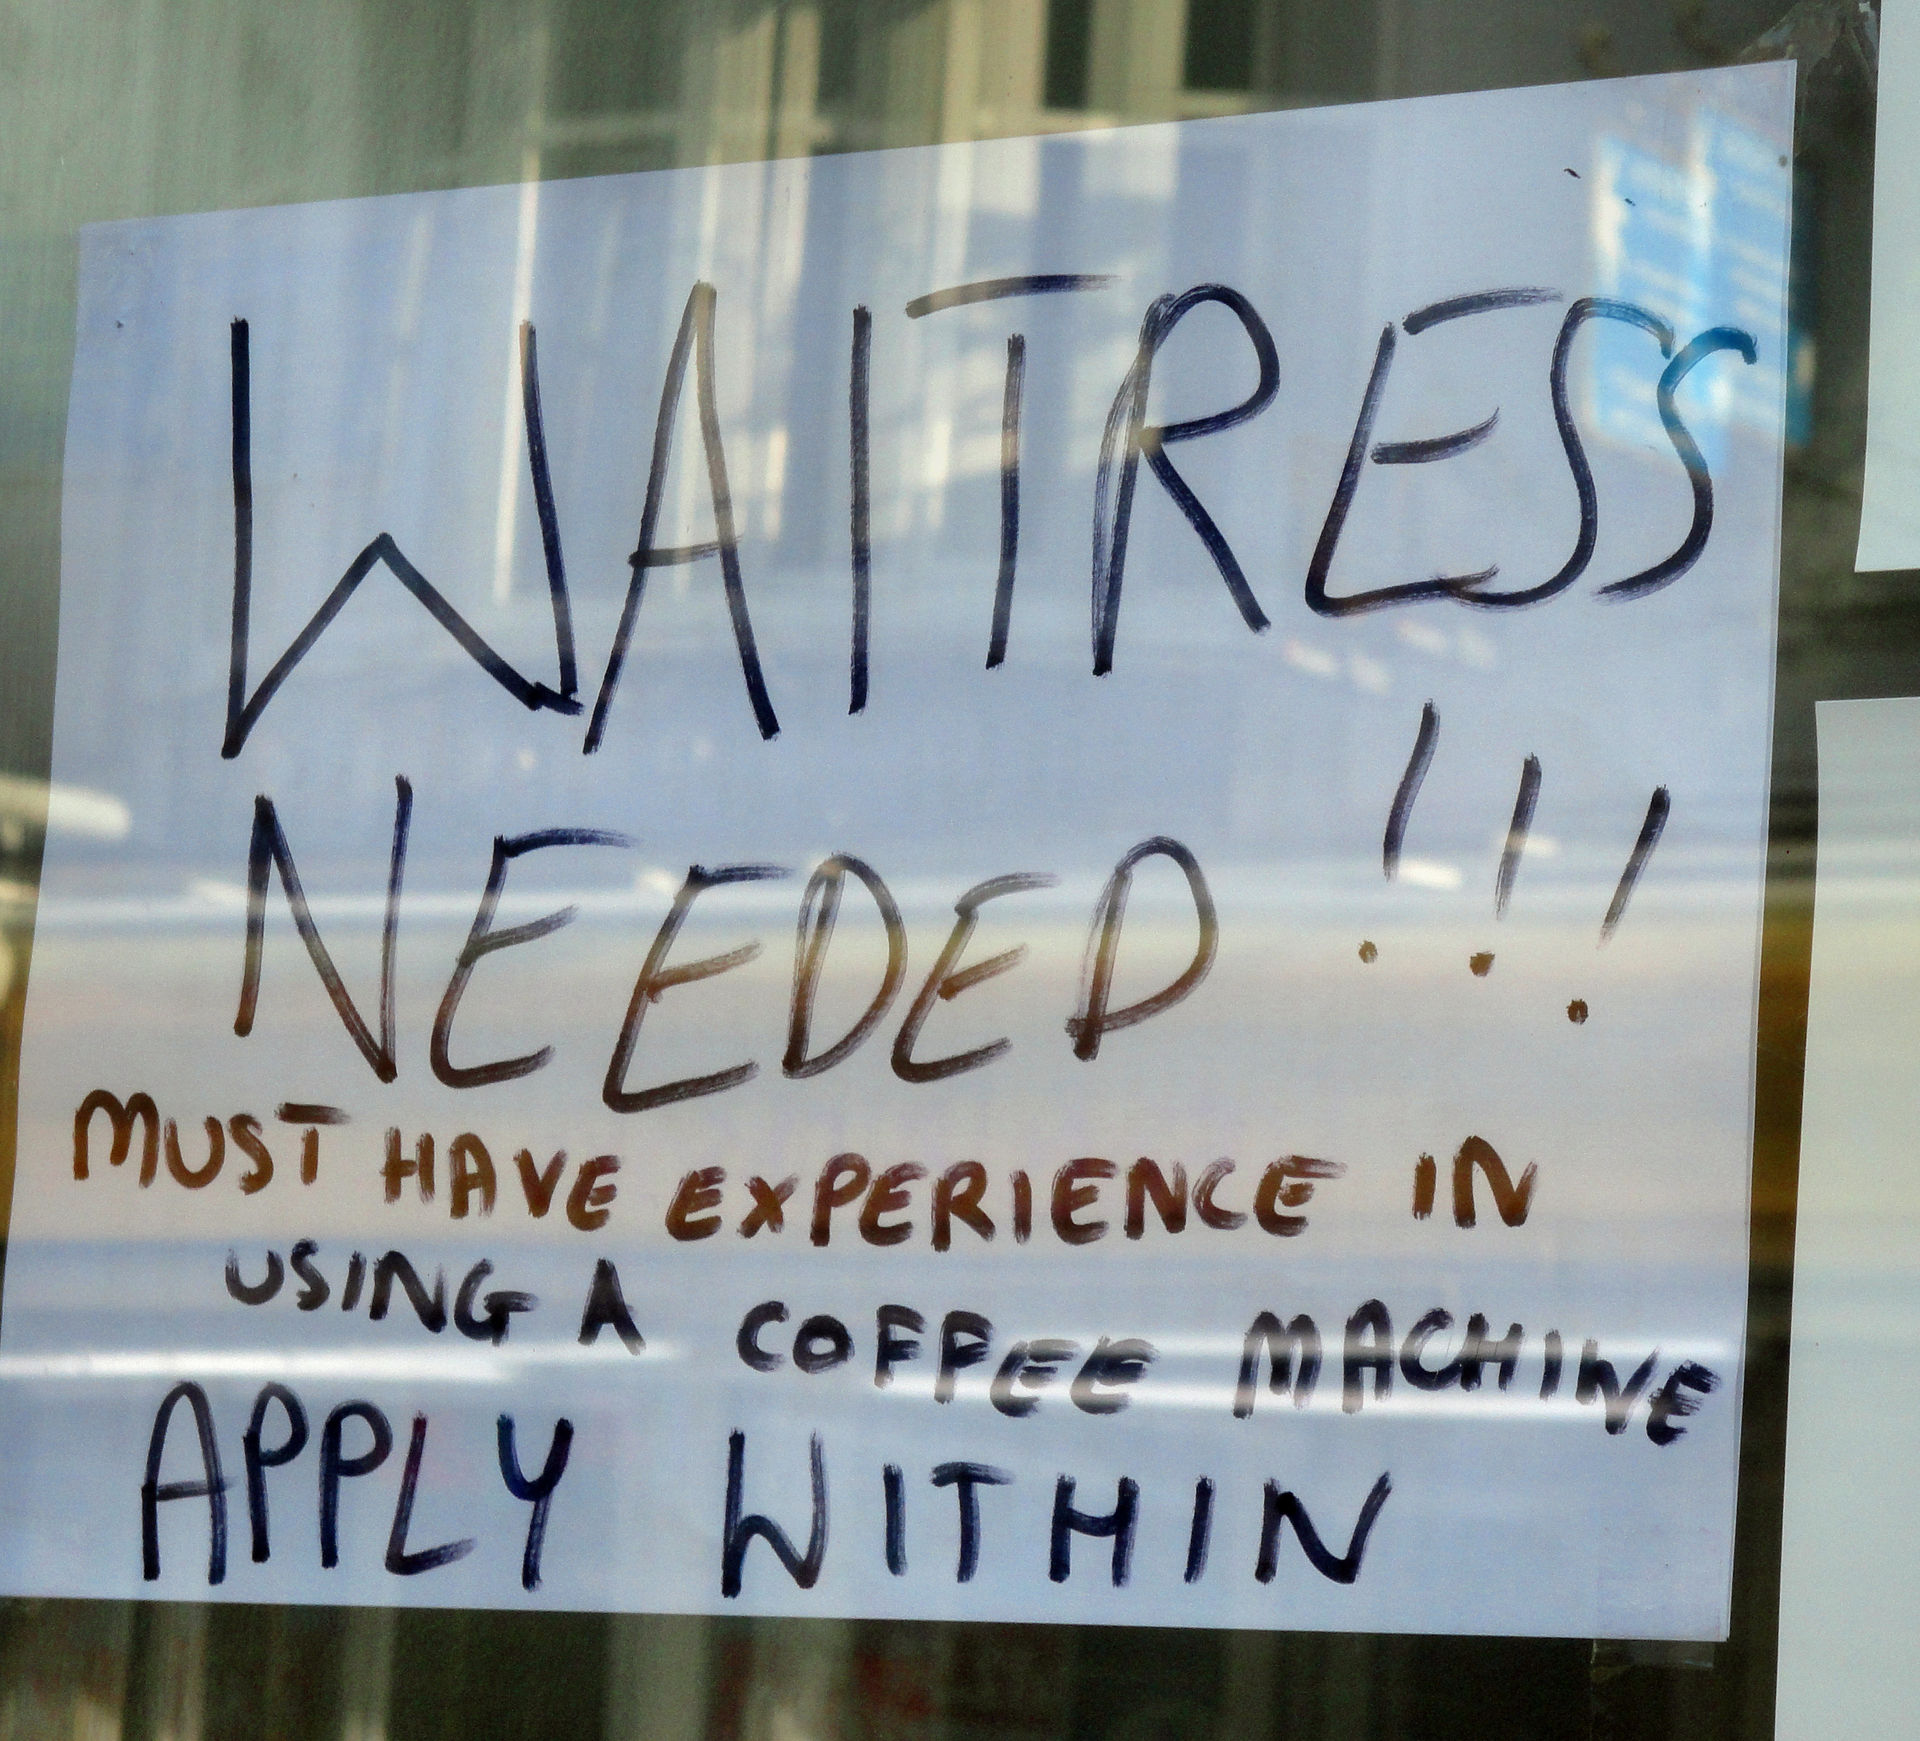 WAITRESS
NEEDED !!!
MUST HAVE EXPERIENCE IN
USING A COFFEE MACHINE
APPLY WITHIN